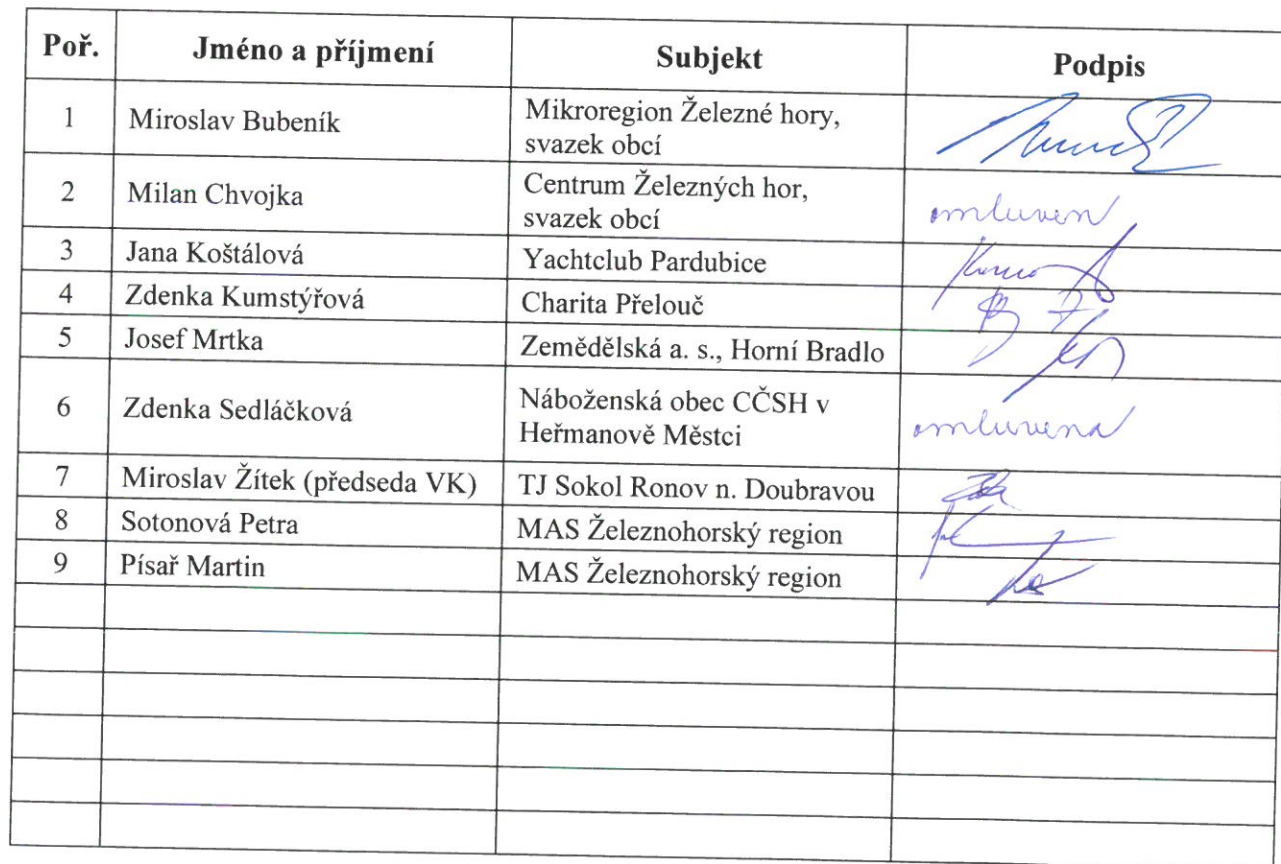 Poř. Jméno a příjmení Subjekt Podpis
1 Miroslav Bubeník Mikroregion Železné hory,
svazek obcí
2 Milan Chvojka Centrum Železných hor, omluven
svazek obcí
3 Jana Koštálová Yachtclub Pardubice
4 Zdenka Kumstýřová Charita Přelouč
5 Josef Mrtka Zemědělská a. s., Horní Bradlo
6 Zdenka Sedláčková Náboženská obec CČSH v omluvena
Heřmanově Městci
7 Miroslav Žítek (předseda VK) TJ Sokol Ronov n. Doubravou
8 Sotonová Petra MAS Železnohorský region
9 Písař Martin MAS Železnohorský region